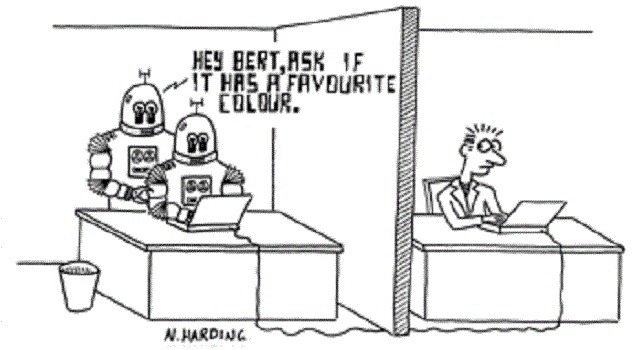 HEY BERT, ASK IF
IT HAS A FAVOURITE
COLOUR.
N.HARDING